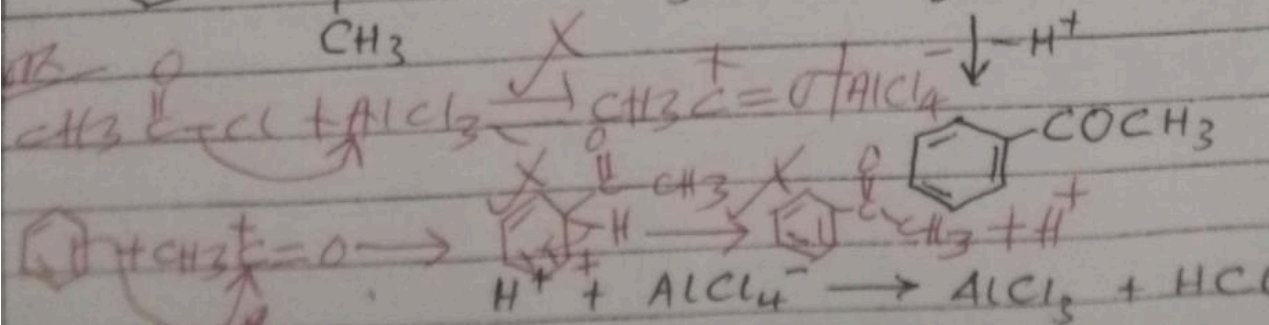 CH3 -H+
OR O
CH3 C-Cl + AlCl3 ⇌ CH3C+=O + AlCl4-
COCH3
O CH3 O
+ CH3C+=O → H + → C CH3 + H+
H+ + AlCl4- → AlCl3 + HCl